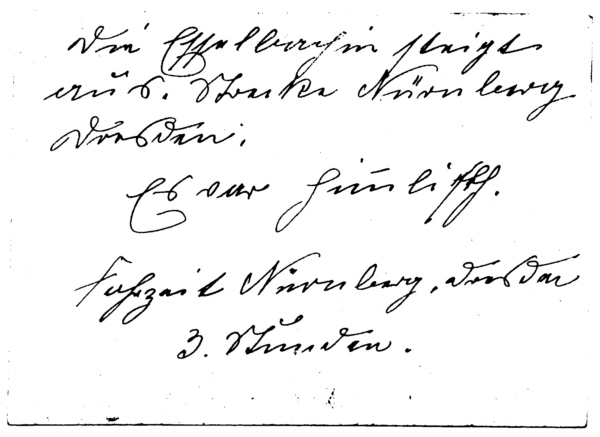 Die Esselbachin steigt
aus. Strecke Nürnberg
Dresden.
Es war himlisch.
Fahrzeit Nürnberg, Dresden
3. Stunden.